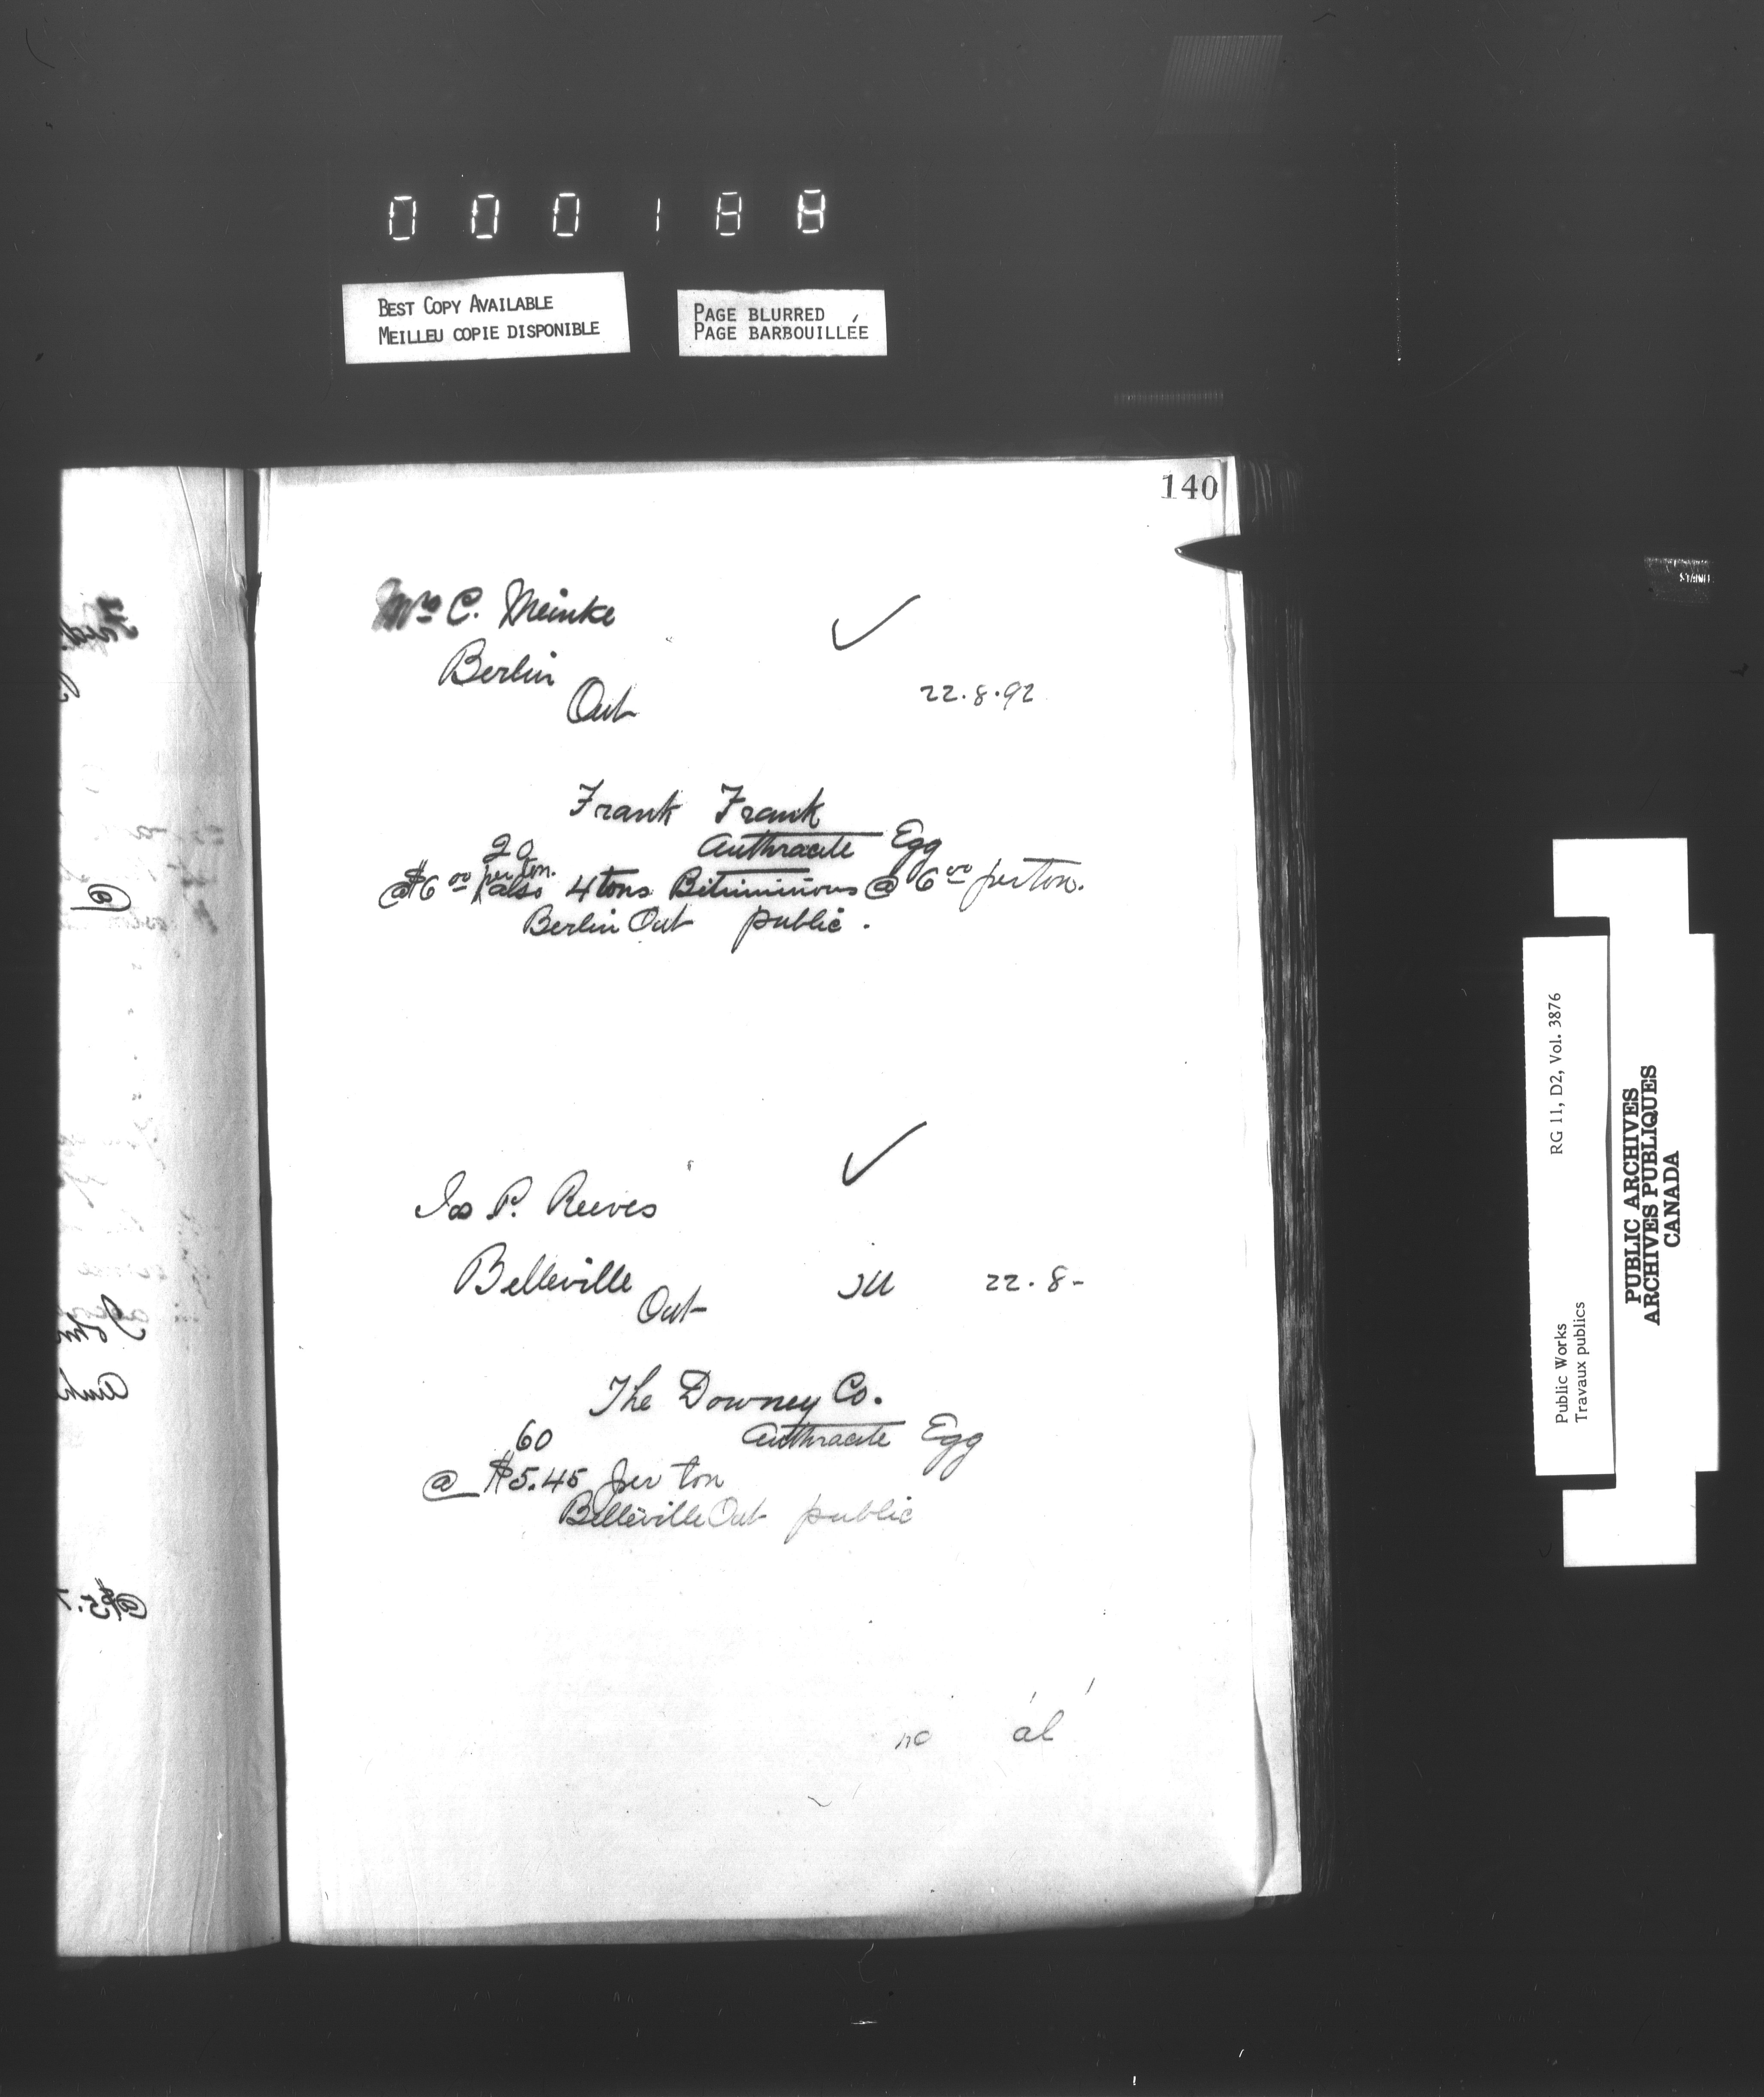 000188
BEST COPY AVAILABLE
MEILLEU COPIE DISPONIBLE
PAGE BLURRED
PAGE BARBOUILLÉE
140
Mrs C. Meinke
Berlin
Ont
22.8.92
Frank Frank
20 Anthracite Egg
@ $6 00 per ton. also 4 tons Bituminous @ 6 00 per ton.
Berlin Ont public.
Jos P. Reeves
Belleville
Ont
22.8-
The Downey Co.
60 Anthracite Egg
@ $5.45 per ton
Belleville Ont public
RG 11, D2, Vol. 3876
Public Works
Travaux publics
PUBLIC ARCHIVES
ARCHIVES PUBLIQUES
CANADA